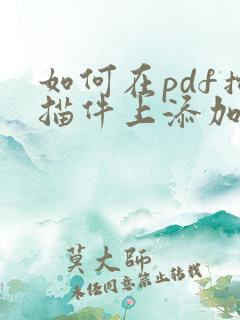 如何在pdf扫
描件上添加
莫大师
未经同意禁止转载